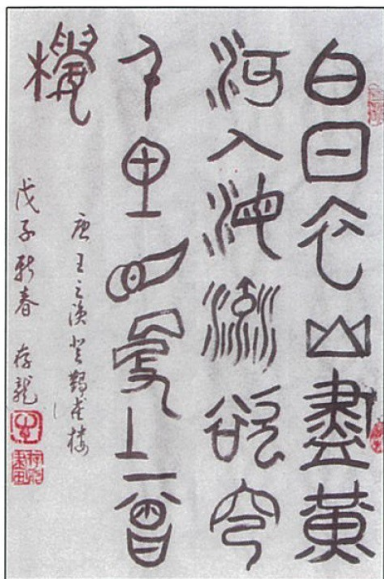 白日衣山盡黄
河入海流欲穷
千里目更上一曾
樓
唐王之渙登鸛雀楼
戊子新春 存龍